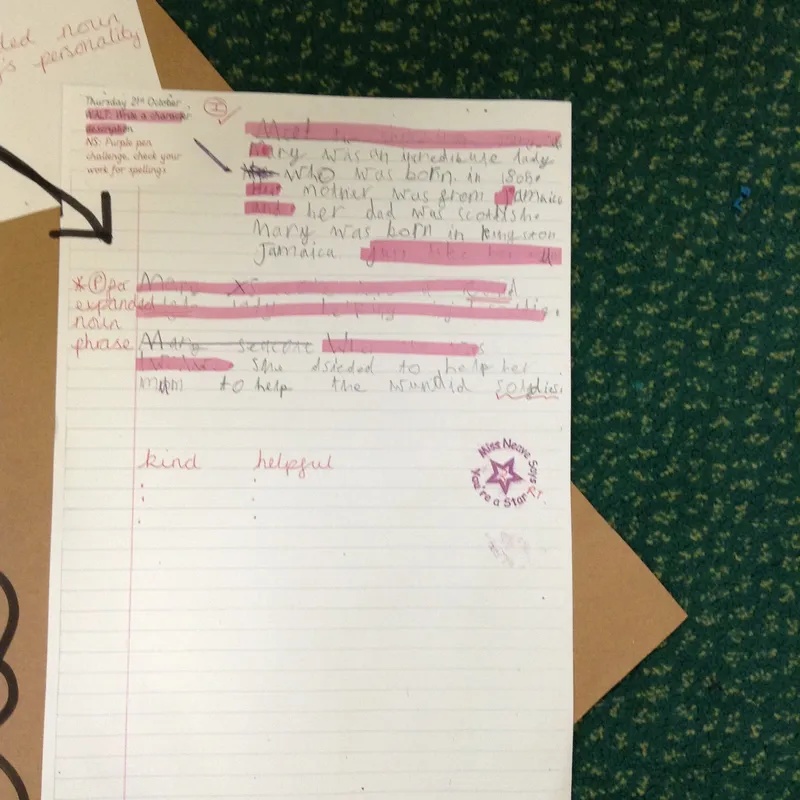 ded noun
's personality
Thursday 21st October
WALT: Write a character
description
NS: Purple pen
challenge, check your
work for spellings
I
Meet
Mary was an yncredibule lady
who was born in 1808.
Her mother was from Jamaica
and her dad was scottish.
Mary was born in kingston
Jamaica just like
* P per
expanded
noun
phrase
Mary
lady helping
Mary seacole Who
she dsieded to help her
mum to help the wundid soldies.
kind helpful
Miss Neave Says
You're a Star!